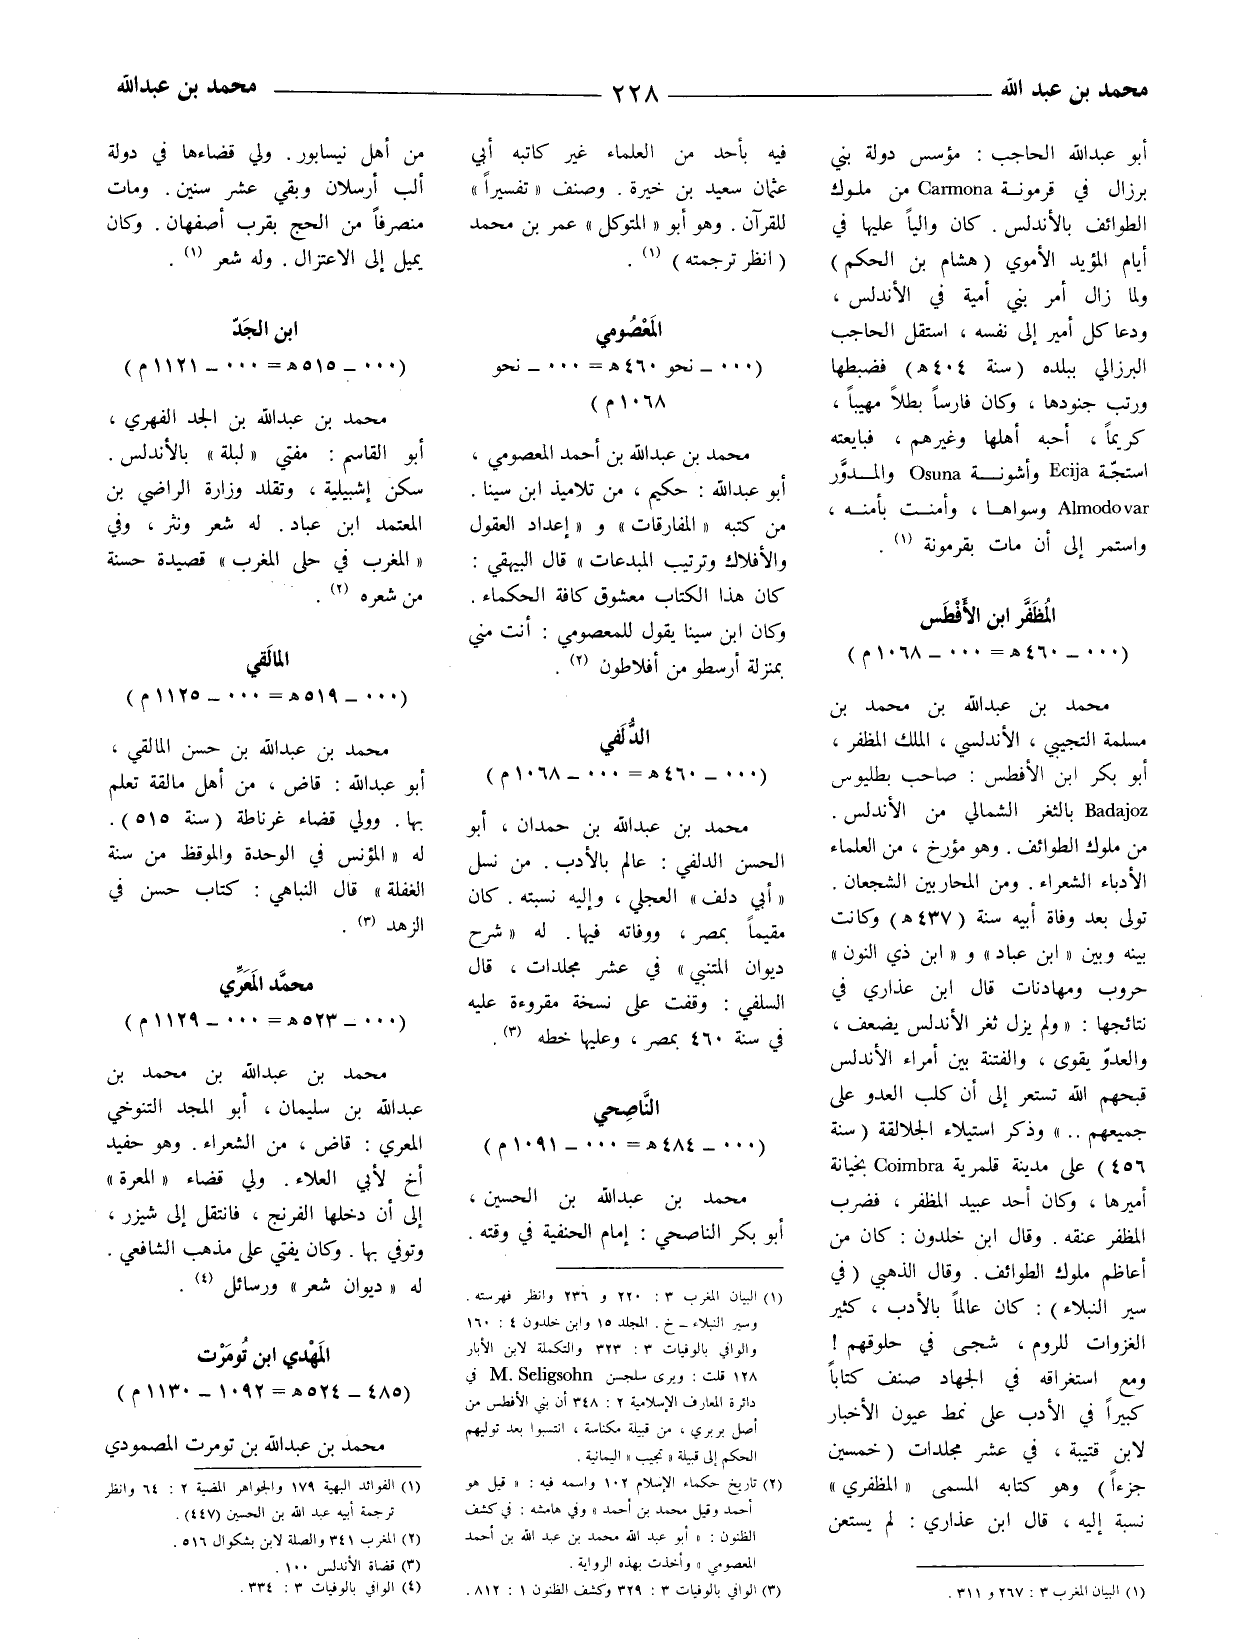 محمد بن عبد الله ــــ ٢٢٨ ــــ محمد بن عبدالله
أبو عبدالله الحاجب : مؤسس دولة بني
برزال في قرمونـة Carmona من ملوك
الطوائف بالأندلس . كان والياً عليها في
أيام المؤيد الأموي ( هشام بن الحكم )
ولما زال أمر بني أمية في الأندلس ،
ودعا كل أمير إلى نفسه ، استقل الحاجب
البرزالي ببلده ( سنة ٤٠٤ هـ ) فضبطها
ورتب جنودها ، وكان فارساً بطلاً مهيباً ،
كريماً ، أحبه أهلها وغيرهم ، فبايعته
استجّة Ecija وأشونــة Osuna والمـدوَّر
Almodovar وسواهـا ، وأمنـت بأمنـه ،
واستمر إلى أن مات بقرمونة (١) .
المُظَفَّر ابن الأَفْطَس
( ٠٠٠ ــ ٤٦٠ هـ = ٠٠٠ ــ ١٠٦٨ م )
محمد بن عبدالله بن محمد بن
مسلمة التجيبي ، الأندلسي ، الملك المظفر ،
أبو بكر ابن الأفطس : صاحب بطليوس
Badajoz بالثغر الشمالي من الأندلس .
من ملوك الطوائف . وهو مؤرخ ، من العلماء
الأدباء الشعراء . ومن المحاربين الشجعان .
تولى بعد وفاة أبيه سنة ( ٤٣٧ هـ ) وكانت
بينه وبين « ابن عباد » و « ابن ذي النون »
حروب ومهادنات قال ابن عذاري في
نتائجها : « ولم يزل ثغر الأندلس يضعف ،
والعدوّ يقوى ، والفتنة بين أمراء الأندلس
قبحهم الله تستعر إلى أن كلب العدو على
جميعهم .. » وذكر استيلاء الجلالقة ( سنة
٤٥٦ ) على مدينة قلمرية Coimbra بخيانة
أميرها ، وكان أحد عبيد المظفر ، فضرب
المظفر عنقه . وقال ابن خلدون : كان من
أعاظم ملوك الطوائف . وقال الذهبي ( في
سير النبلاء ) : كان عالماً بالأدب ، كثير
الغزوات للروم ، شجى في حلوقهم !
ومع استغراقه في الجهاد صنف كتاباً
كبيراً في الأدب على نمط عيون الأخبار
لابن قتيبة ، في عشر مجلدات ( خمسين
جزءاً ) وهو كتابه المسمى « المظفري »
نسبة إليه ، قال ابن عذاري : لم يستعن
(١) البيان المغرب ٣ : ٢٦٧ و ٣١١ .
فيه بأحد من العلماء غير كاتبه أبي
عثمان سعيد بن خيرة . وصنف « تفسيراً »
للقرآن . وهو أبو « المتوكل » عمر بن محمد
( انظر ترجمته ) (١) .
المَعْصُومي
( ٠٠٠ ــ نحو ٤٦٠ هـ = ٠٠٠ ــ نحو
١٠٦٨ م )
محمد بن عبدالله بن أحمد المعصومي ،
أبو عبدالله : حكيم ، من تلاميذ ابن سينا .
من كتبه « المفارقات » و « إعداد العقول
والأفلاك وترتيب المبدعات » قال البيهقي :
كان هذا الكتاب معشوق كافة الحكماء .
وكان ابن سينا يقول للمعصومي : أنت مني
بمنزلة أرسطو من أفلاطون (٢) .
الدُّلَفي
( ٠٠٠ ــ ٤٦٠ هـ = ٠٠٠ ــ ١٠٦٨ م )
محمد بن عبدالله بن حمدان ، أبو
الحسن الدلفي : عالم بالأدب . من نسل
« أبي دلف » العجلي ، وإليه نسبته . كان
مقيماً بمصر ، ووفاته فيها . له « شرح
ديوان المتنبي » في عشر مجلدات ، قال
السلفي : وقفت على نسخة مقروءة عليه
في سنة ٤٦٠ بمصر ، وعليها خطه (٣) .
النَّاصِحي
( ٠٠٠ ــ ٤٨٤ هـ = ٠٠٠ ــ ١٠٩١ م )
محمد بن عبدالله بن الحسين ،
أبو بكر الناصحي : إمام الحنفية في وقته .
(١) البيان المغرب ٣ : ٢٢٠ و ٢٣٦ وانظر فهرسته .
وسير النبلاء ــ خ . المجلد ١٥ وابن خلدون ٤ : ١٦٠
والوافي بالوفيات ٣ : ٣٢٣ والتكملة لابن الأبار
١٢٨ قلت : ويرى سلجسن M. Seligsohn في
دائرة المعارف الإسلامية ٢ : ٣٤٨ أن بني الأفطس من
أصل بربري ، من قبيلة مكناسة ، انتسبوا بعد توليهم
الحكم إلى قبيلة « تجيب » اليمانية .
(٢) تاريخ حكماء الإسلام ١٠٢ واسمه فيه : « قيل هو
أحمد وقيل محمد بن أحمد » وفي هامشه : في كشف
الظنون : « أبو عبد الله محمد بن عبد الله بن أحمد
المعصومي » وأخذت بهذه الرواية .
(٣) الوافي بالوفيات ٣ : ٣٢٩ وكشف الظنون ١ : ٨١٢ .
من أهل نيسابور . ولي قضاءها في دولة
ألب أرسلان وبقي عشر سنين . ومات
منصرفاً من الحج بقرب أصفهان . وكان
يميل إلى الاعتزال . وله شعر (١) .
ابن الجَدّ
( ٠٠٠ ــ ٥١٥ هـ = ٠٠٠ ــ ١١٢١ م )
محمد بن عبدالله بن الجد الفهري ،
أبو القاسم : مفتي « لبلة » بالأندلس .
سكن إشبيلية ، وتقلد وزارة الراضي بن
المعتمد ابن عباد . له شعر ونثر ، وفي
« المغرب في حلى المغرب » قصيدة حسنة
من شعره (٢) .
المالَقي
( ٠٠٠ ــ ٥١٩ هـ = ٠٠٠ ــ ١١٢٥ م )
محمد بن عبدالله بن حسن المالقي ،
أبو عبدالله : قاض ، من أهل مالقة تعلم
بها . وولي قضاء غرناطة ( سنة ٥١٥ ) .
له « المؤنس في الوحدة والموقظ من سنة
الغفلة » قال النباهي : كتاب حسن في
الزهد (٣) .
محمَّد المَعَرِّي
( ٠٠٠ ــ ٥٢٣ هـ = ٠٠٠ ــ ١١٢٩ م )
محمد بن عبدالله بن محمد بن
عبدالله بن سليمان ، أبو المجد التنوخي
المعري : قاض ، من الشعراء . وهو حفيد
أخ لأبي العلاء . ولي قضاء « المعرة »
إلى أن دخلها الفرنج ، فانتقل إلى شيزر ،
وتوفي بها . وكان يفتي على مذهب الشافعي .
له « ديوان شعر » ورسائل (٤) .
المَهْدي ابن تُومَرْت
( ٤٨٥ ــ ٥٢٤ هـ = ١٠٩٢ ــ ١١٣٠ م )
محمد بن عبدالله بن تومرت المصمودي
(١) الفوائد البهية ١٧٩ والجواهر المضية ٢ : ٦٤ وانظر
ترجمة أبيه عبد الله بن الحسين (٤٤٧) .
(٢) المغرب ٣٤١ والصلة لابن بشكوال ٥١٦ .
(٣) قضاة الأندلس ١٠٠ .
(٤) الوافي بالوفيات ٣ : ٣٣٤ .